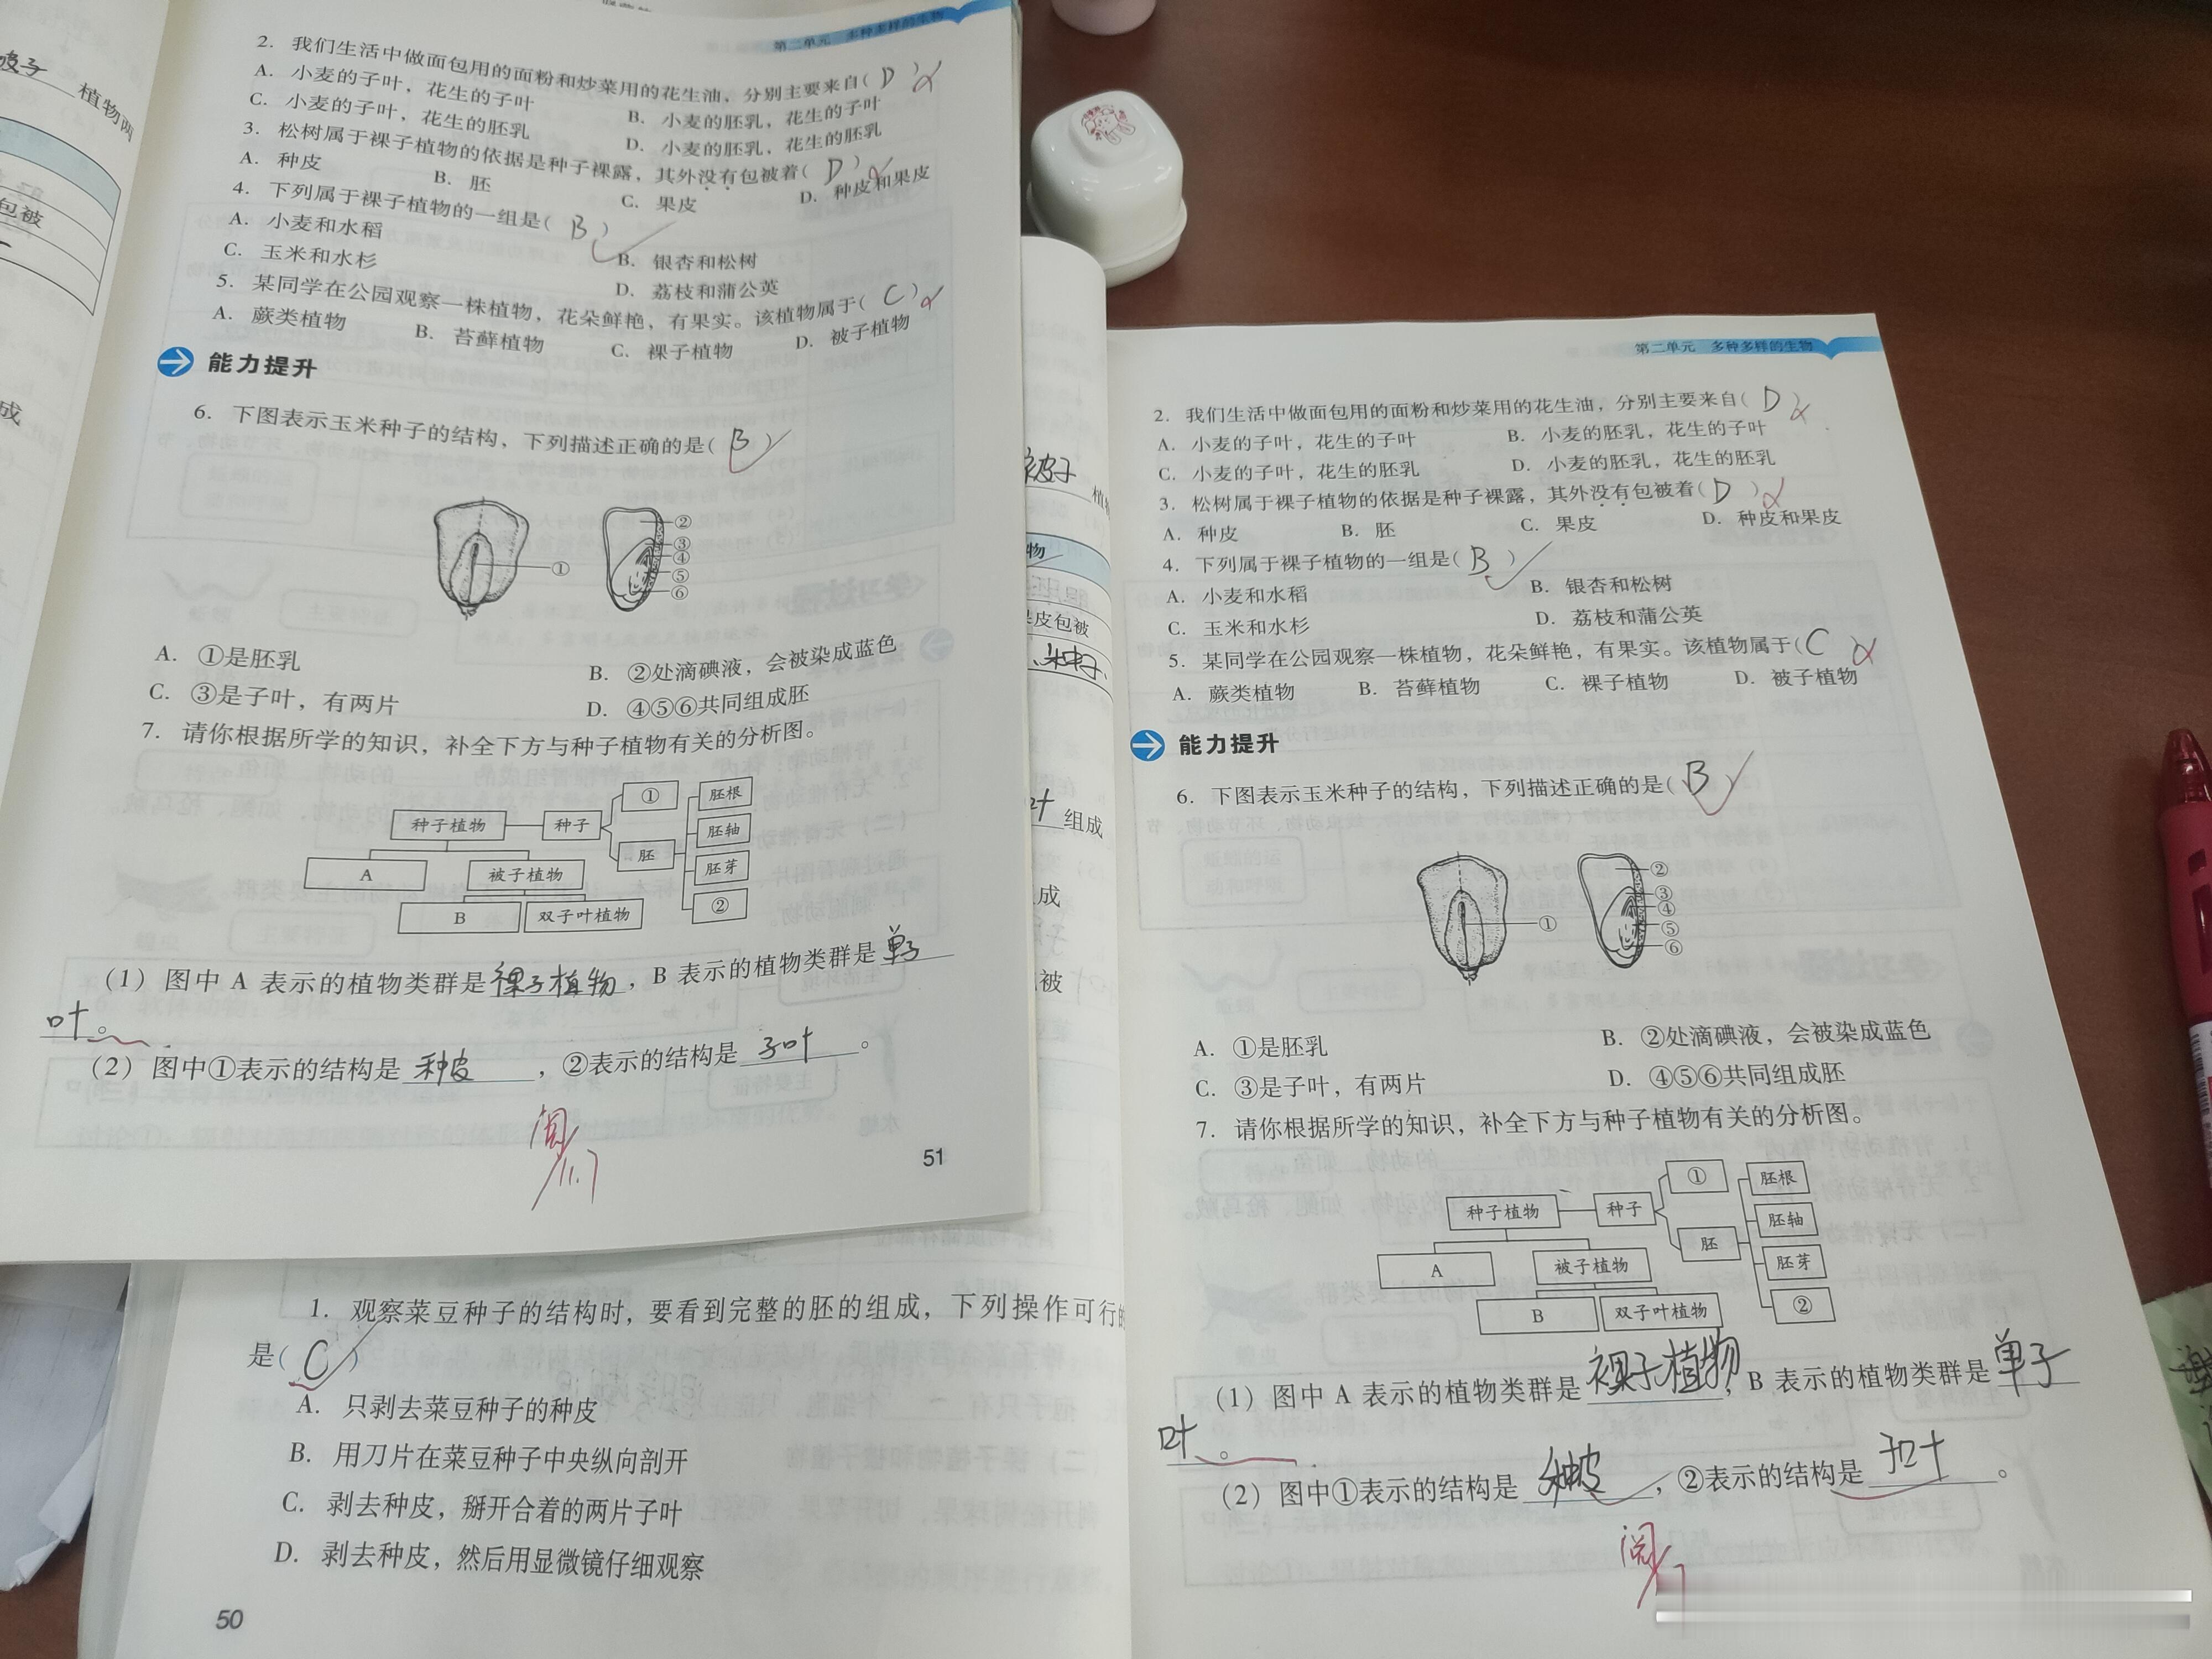 第二单元 多种多样的生物
2. 我们生活中做面包用的面粉和炒菜用的花生油，分别主要来自( D )
A. 小麦的子叶，花生的子叶 B. 小麦的胚乳，花生的子叶
C. 小麦的子叶，花生的胚乳 D. 小麦的胚乳，花生的胚乳
3. 松树属于裸子植物的依据是种子裸露，其外没有包被着( D )
A. 种皮 B. 胚 C. 果皮 D. 种皮和果皮
4. 下列属于裸子植物的一组是( B )
A. 小麦和水稻 B. 银杏和松树
C. 玉米和水杉 D. 荔枝和蒲公英
5. 某同学在公园观察一株植物，花朵鲜艳，有果实。该植物属于( C )
A. 蕨类植物 B. 苔藓植物 C. 裸子植物 D. 被子植物
能力提升
6. 下图表示玉米种子的结构，下列描述正确的是( B )
①
②
③
④
⑤
⑥
A. ①是胚乳 B. ②处滴碘液，会被染成蓝色
C. ③是子叶，有两片 D. ④⑤⑥共同组成胚
7. 请你根据所学的知识，补全下方与种子植物有关的分析图。
种子植物 种子 ① 胚
胚根
胚轴
胚芽
②
A 被子植物
B 双子叶植物
(1) 图中 A 表示的植物类群是裸子植物，B 表示的植物类群是单子
叶。
(2) 图中①表示的结构是 种皮，②表示的结构是 子叶。
阅
11.7
51
植物两
包被
成
1. 观察菜豆种子的结构时，要看到完整的胚的组成，下列操作可行的
是( C )
A. 只剥去菜豆种子的种皮
B. 用刀片在菜豆种子中央纵向剖开
C. 剥去种皮，掰开合着的两片子叶
D. 剥去种皮，然后用显微镜仔细观察
50
被子
物
皮包被
叶 组成
成
被
第二单元 多种多样的生物
2. 我们生活中做面包用的面粉和炒菜用的花生油，分别主要来自( D )
A. 小麦的子叶，花生的子叶 B. 小麦的胚乳，花生的子叶
C. 小麦的子叶，花生的胚乳 D. 小麦的胚乳，花生的胚乳
3. 松树属于裸子植物的依据是种子裸露，其外没有包被着( D )
A. 种皮 B. 胚 C. 果皮 D. 种皮和果皮
4. 下列属于裸子植物的一组是( B )
A. 小麦和水稻 B. 银杏和松树
C. 玉米和水杉 D. 荔枝和蒲公英
5. 某同学在公园观察一株植物，花朵鲜艳，有果实。该植物属于( C
A. 蕨类植物 B. 苔藓植物 C. 裸子植物 D. 被子植物
能力提升
6. 下图表示玉米种子的结构，下列描述正确的是( B )
①
②
③
④
⑤
⑥
A. ①是胚乳 B. ②处滴碘液，会被染成蓝色
C. ③是子叶，有两片 D. ④⑤⑥共同组成胚
7. 请你根据所学的知识，补全下方与种子植物有关的分析图。
种子植物 种子 ① 胚
胚根
胚轴
胚芽
②
A 被子植物
B 双子叶植物
(1) 图中 A 表示的植物类群是裸子植物，B 表示的植物类群是单子
叶。
(2) 图中①表示的结构是 种皮，②表示的结构是 子叶。
阅